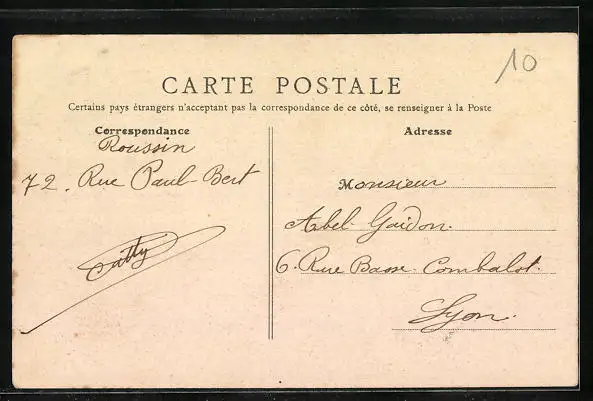 10
CARTE POSTALE
Certains pays étrangers n'acceptant pas la correspondance de ce côté, se renseigner à la Poste
Correspondance
Roussin
72. Rue Paul-Bert
Adresse
Monsieur
Abel Gaidon.
6. Rue Basse-Combalot.
Lyon.